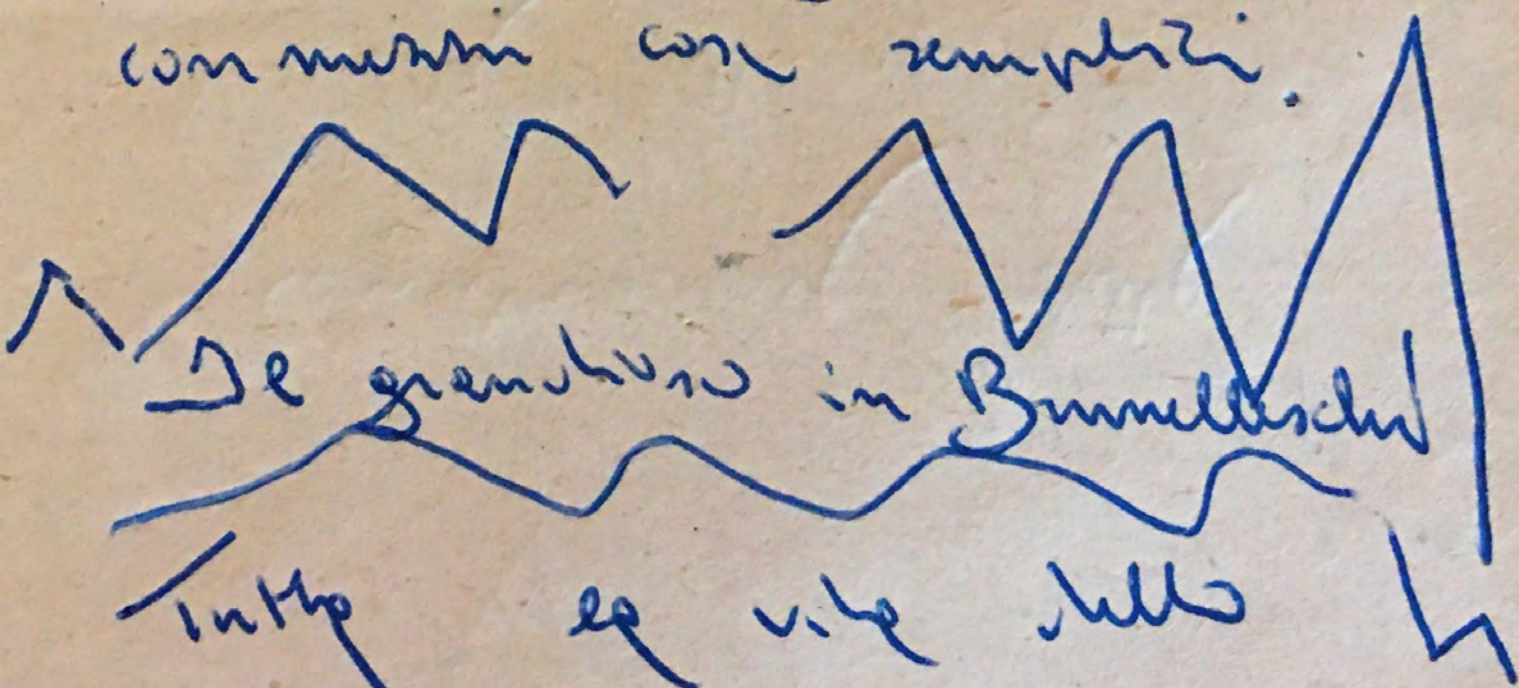 connessi così semplici.
Il grandioso in Brunelleschi
Tutta la vita dello